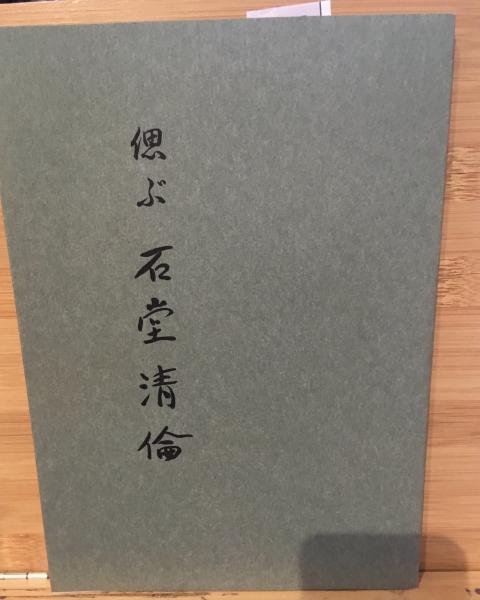 偲ぶ 石堂清倫